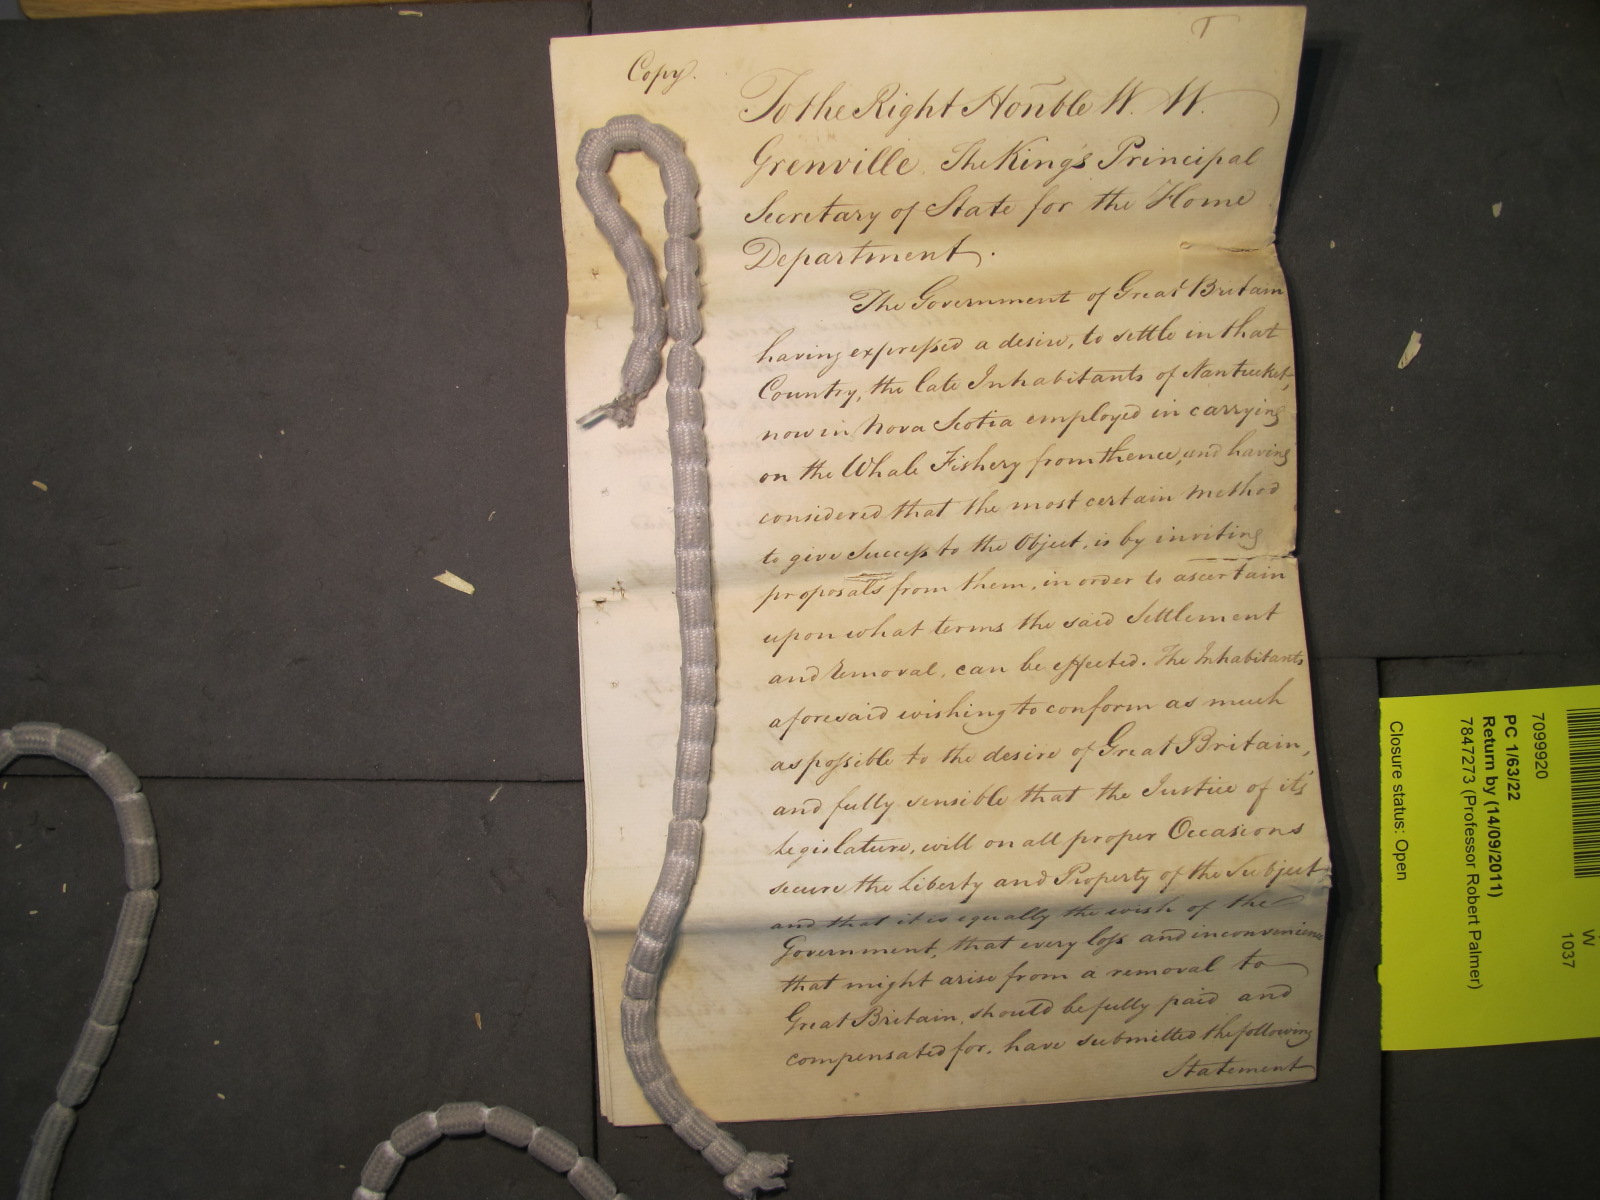 Copy.
To the Right Honble W. W.
Grenville. The King's Principal
Secretary of State for the Home
Department.
The Government of Great Britain
having expressed a desire, to settle in that
Country, the late Inhabitants of Nantucket,
now in Nova Scotia employed in carrying
on the Whale Fishery from thence, and having
considered that the most certain method
to give Success to the Object, is by inviting
proposals from them, in order to ascertain
upon what terms the said Settlement
and removal, can be effected. The Inhabitants
aforesaid wishing to conform as much
as possible to the desire of Great Britain,
and fully sensible that the Justice of it's
Legislature, will on all proper Occasions
secure the Liberty and Property of the Subject
and that it is equally the wish of the
Government, that every loss and inconvenience
that might arise from a removal to
Great Britain, should be fully paid and
compensated for, have submitted the following
Statement
W
1037
7099920
PC 1/63/22
Return by (14/09/2011)
7847273 (Professor Robert Palmer)
Closure status: Open